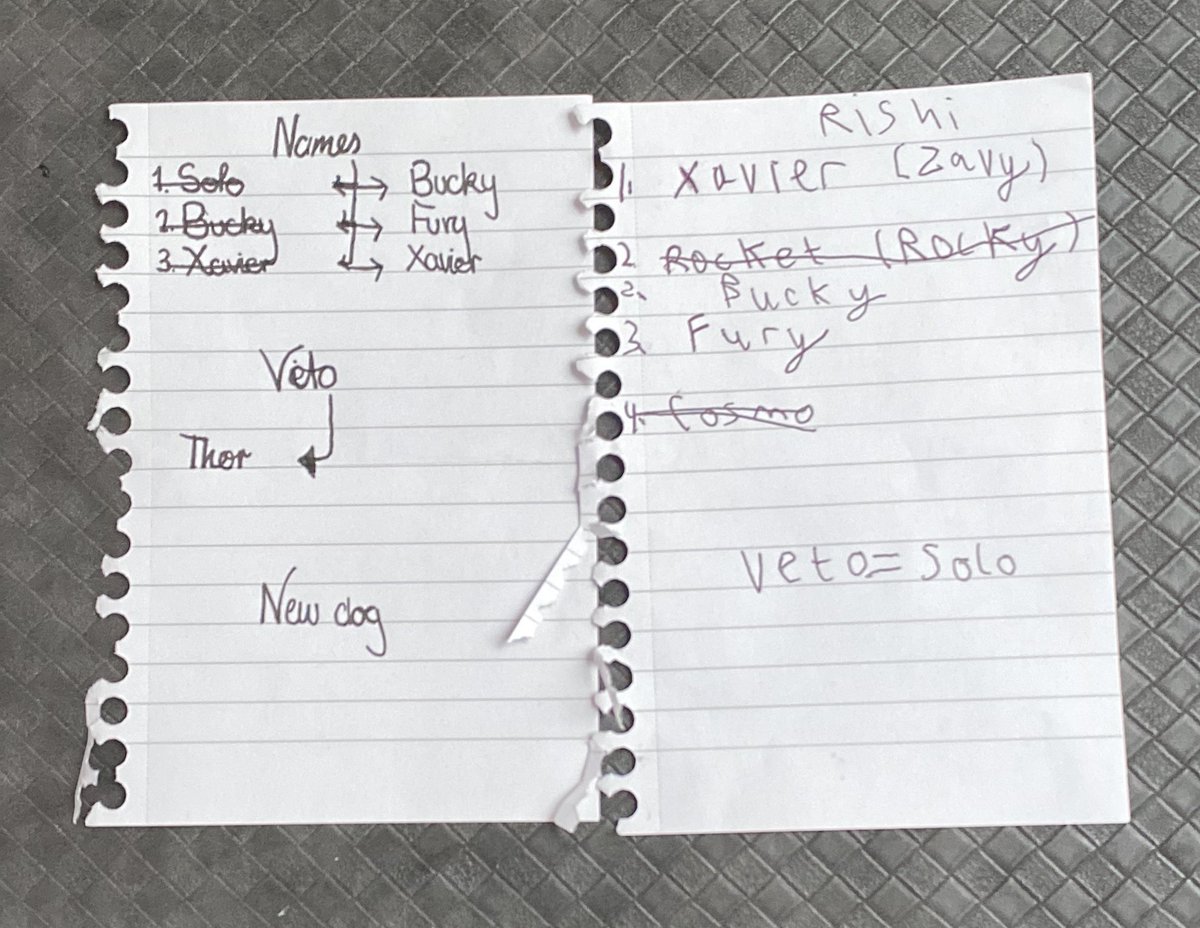 Names
1. Solo ↔ Bucky
2. Bucky ↔ Fury
3. Xavier ↔ Xavier
Veto
Thor
New dog
Rishi
1. Xavier (Zavy)
2. Rocket (Rocky)
2. Bucky
3. Fury
4. Cosmo
Veto = Solo